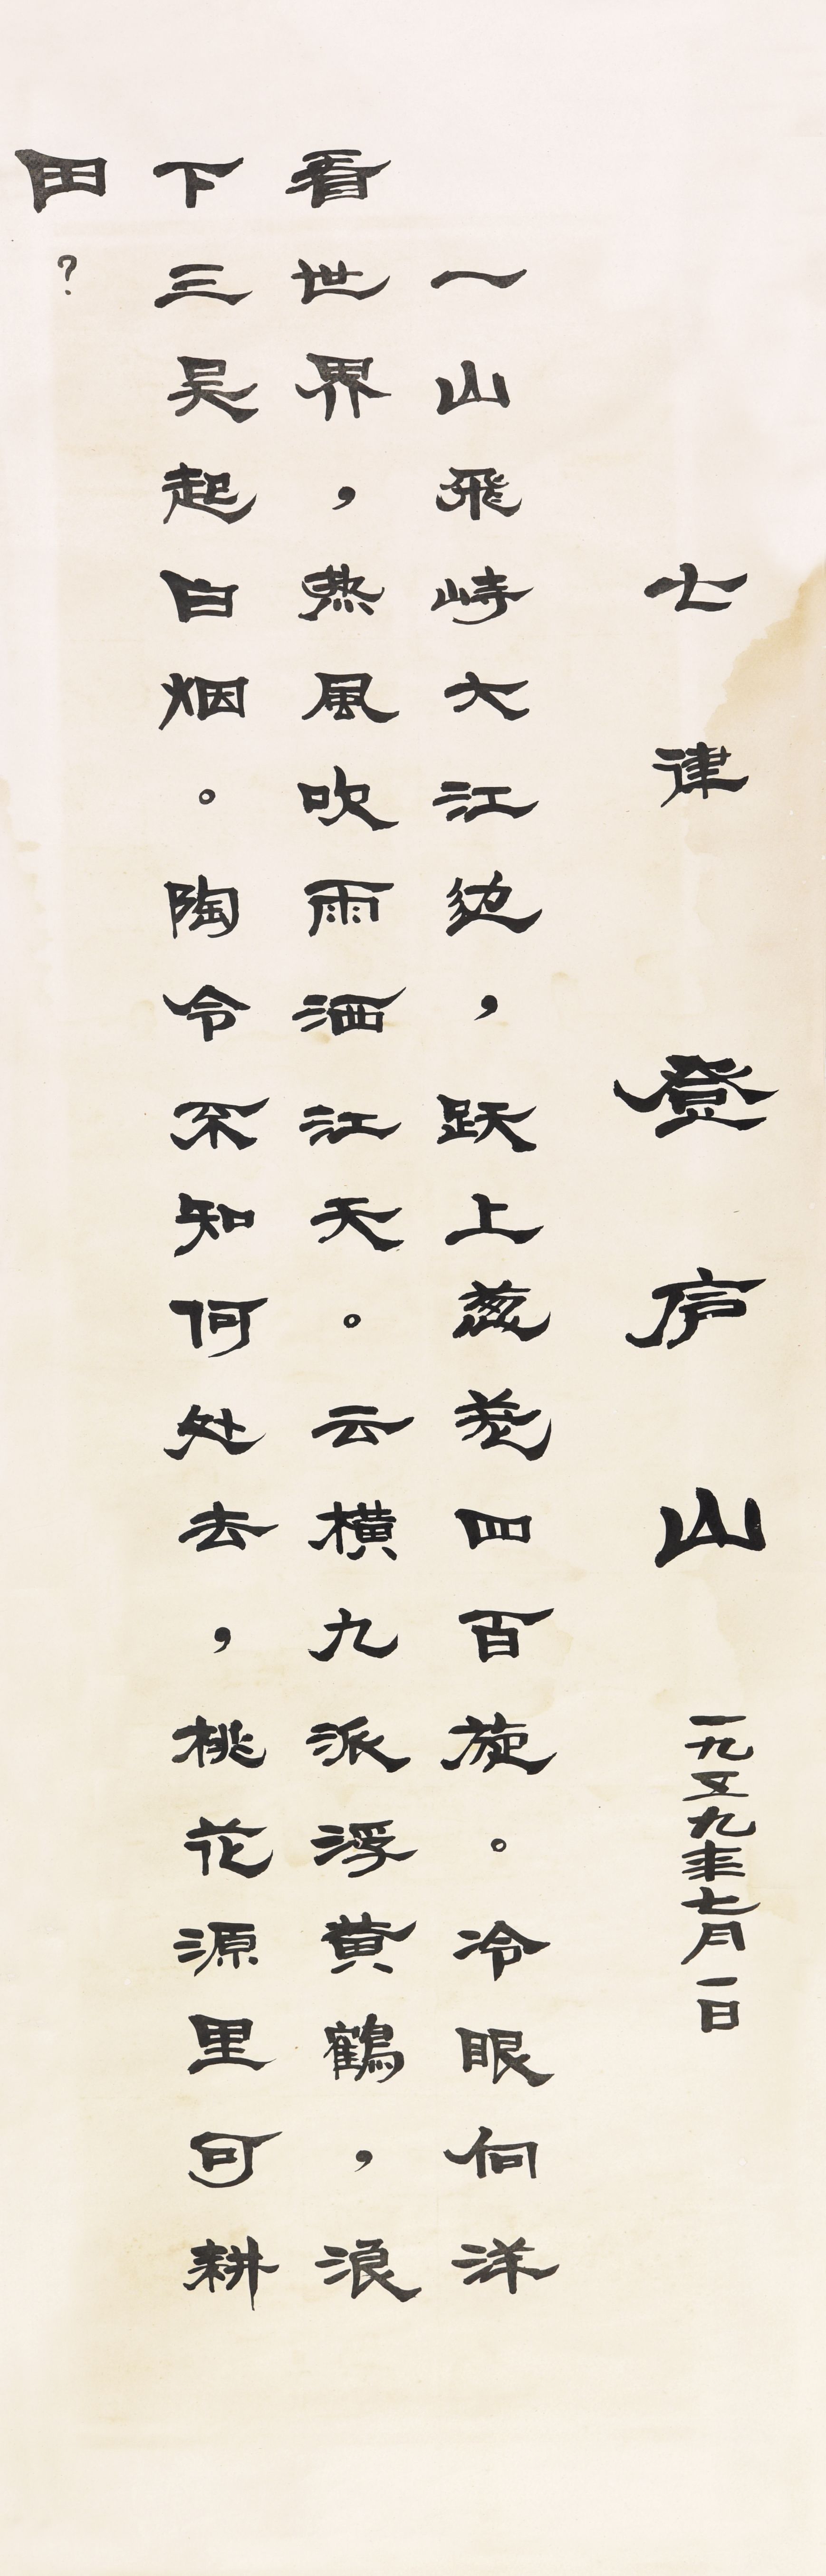 七律 登庐山 一九五九年七月一日
一山飛峙大江边，跃上葱茏四百旋。冷眼向洋
看世界，热風吹雨洒江天。云横九派浮黄鶴，浪
下三吴起白烟。陶令不知何处去，桃花源里可耕
田？